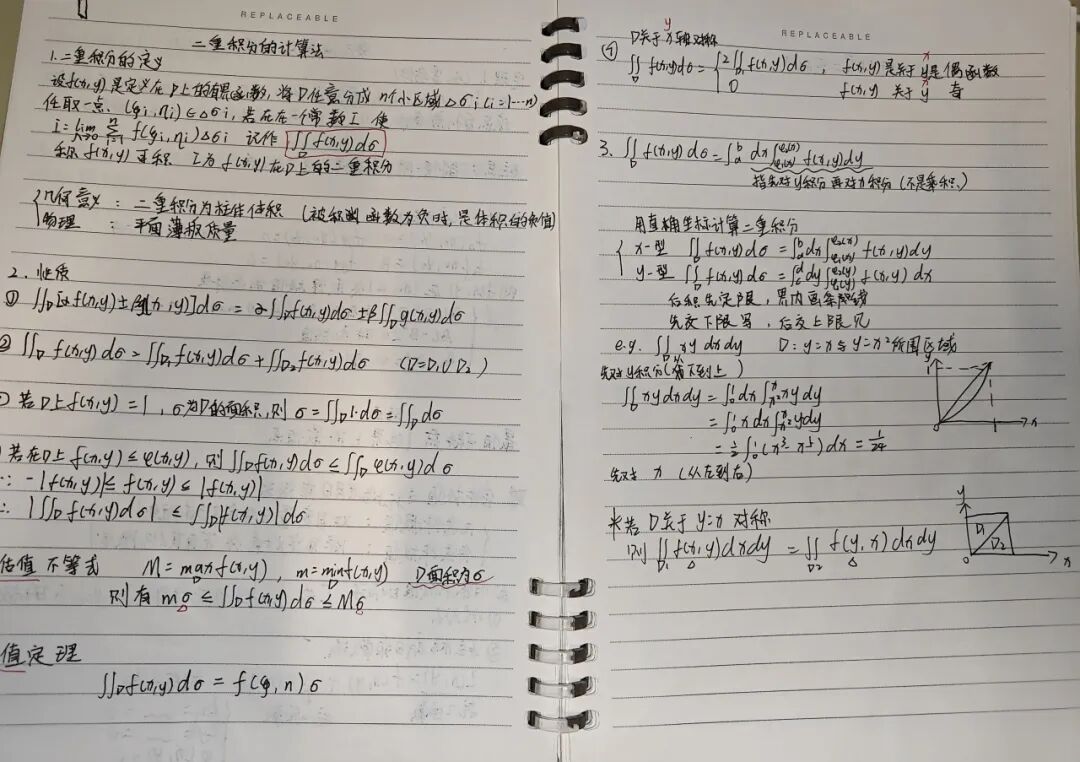 REPLACEABLE
二重积分的计算法
1.二重积分的定义
设f(x,y)是定义在D上的有界函数,将D任意分成n个小区域Δσi(i=1…n)
任取一点(ξi,ηi)∈Δσi,若存在一个常数I 使
I=lim λ→0 Σ(i=1→n) f(ξi,ηi)Δσi 记作 ∬_D f(x,y)dσ
称f(x,y)可积 I为f(x,y)在D上的二重积分
几何意义:二重积分为柱体体积(被积函数为负时,是体积的负值)
物理:平面薄板质量
2.性质
① ∬_D[αf(x,y)±βg(x,y)]dσ=α∬_D f(x,y)dσ±β∬_D g(x,y)dσ
② ∬_D f(x,y)dσ=∬_D₁ f(x,y)dσ+∬_D₂ f(x,y)dσ (D=D₁∪D₂)
若D上f(x,y)=1,σ为D的面积,则σ=∬_D 1·dσ=∬_D dσ
若在D上f(x,y)≤φ(x,y),则∬_D f(x,y)dσ≤∬_D φ(x,y)dσ
∵ -|f(x,y)|≤f(x,y)≤|f(x,y)|
∴ |∬_D f(x,y)dσ|≤∬_D|f(x,y)|dσ
估值不等式 M=max_D f(x,y),m=min_D f(x,y) D面积为σ
则有mσ≤∬_D f(x,y)dσ≤Mσ
值定理
∬_D f(x,y)dσ=f(ξ,η)σ
REPLACEABLE
y
D关于x轴对称
④ ∬_D f(x,y)dσ={2∬_D₁ f(x,y)dσ,f(x,y)是关于y是偶函数 x
0 f(x,y)关于y 奇 x
3.∬_D f(x,y)dσ=∫_a^b dx∫_φ₁(x)^φ₂(x) f(x,y)dy
指先对y积分再对x积分(不是乘积)
用直角坐标计算二重积分
x-型 ∬_D f(x,y)dσ=∫_a^b dx∫_φ₁(x)^φ₂(x) f(x,y)dy
y-型 ∬_D f(x,y)dσ=∫_c^d dy∫_φ₁(y)^φ₂(y) f(x,y)dx
后积先定限,界内画条线
先交下限写,后交上限见
e.g. ∬_D xy dxdy D:y=x与y=x²所围区域
先对y积分(从下到上)
∬_D xy dxdy=∫_0^1 dx∫_x²^x xy dy
=∫_0^1 x dx∫_x²^x y dy
=½∫_0^1(x³-x⁵)dx=1/24
先对x(从左到右)
y
1
0
1
x
*若D关于y=x对称
则∬_D₁ f(x,y)dxdy=∬_D₂ f(y,x)dxdy
y
D₁
D₂
0
x